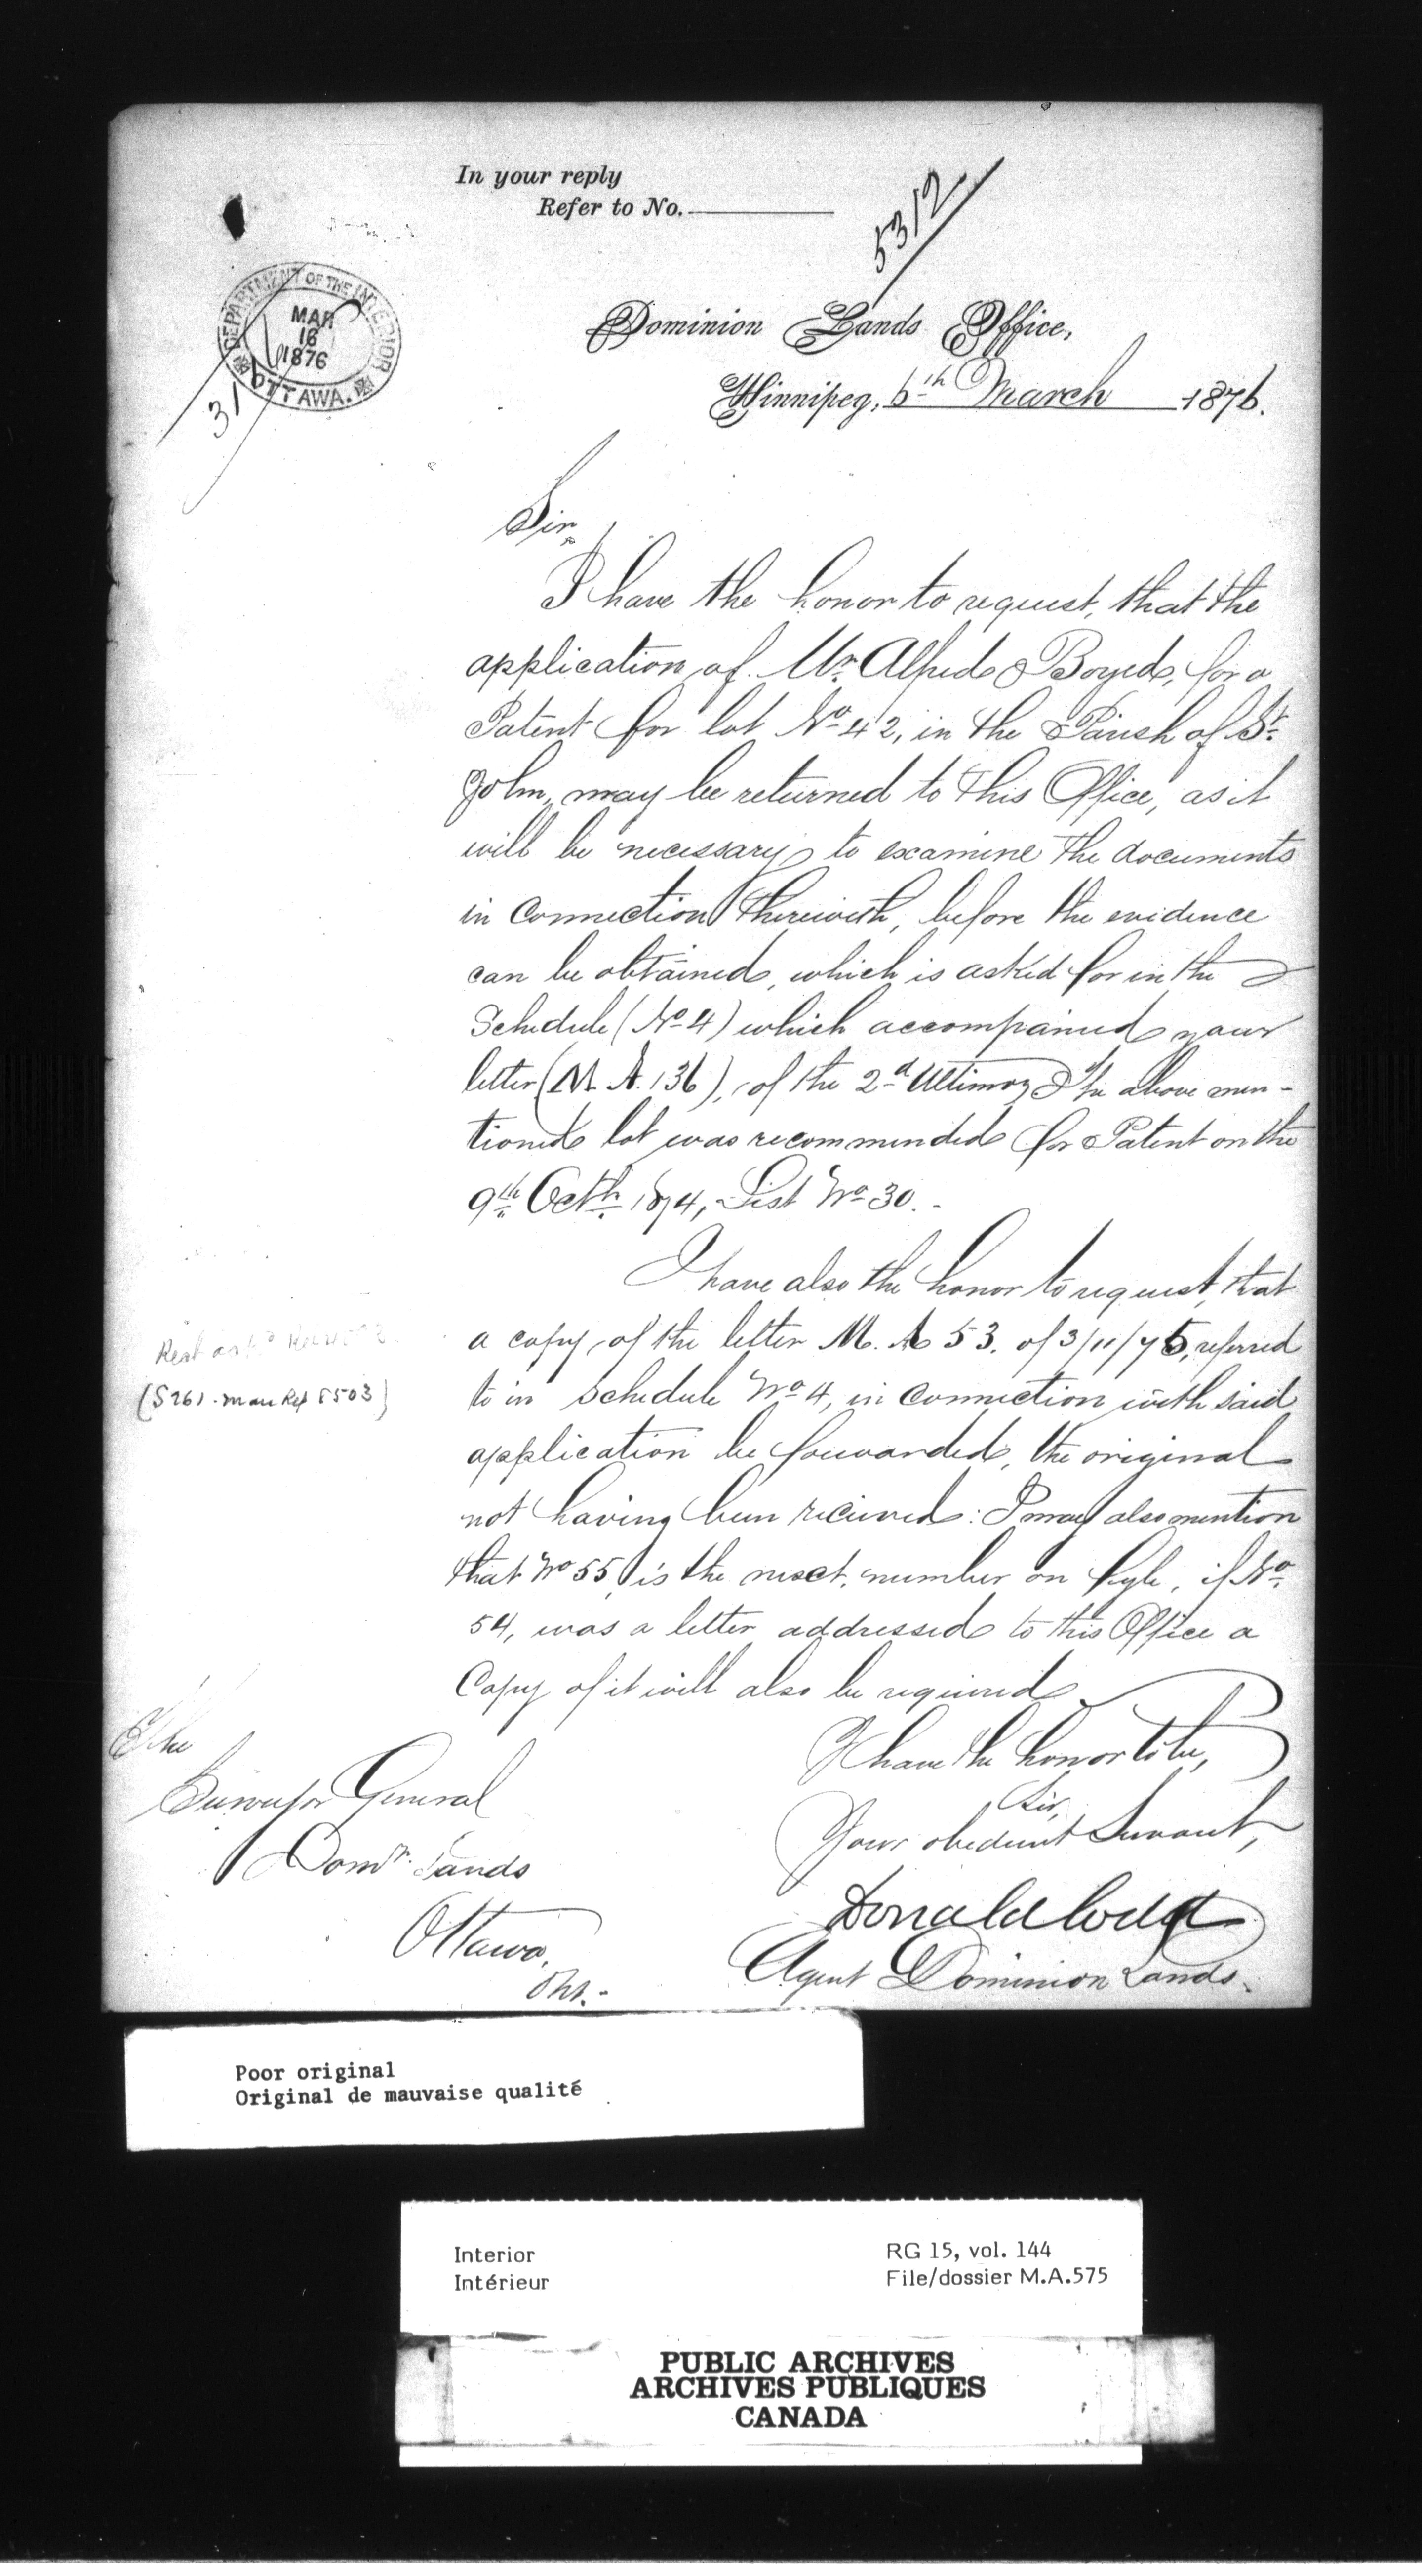 In your reply
Refer to No.
5312
DEPARTMENT OF THE INTERIOR
MAR
16
1876
OTTAWA.
31
Dominion Lands Office,
Winnipeg, 6th March 1876.
Sir,
I have the honor to request, that the
application of Mr Alfred Boyd, for a
Patent for lot No 42, in the Parish of St.
John, may be returned to this Office, as it
will be necessary to examine the documents
in connection therewith, before the evidence
can be obtained, which is asked for in the
Schedule (No 4) which accompanied your
letter (M. A. 136), of the 2d Ultimo, The above men-
tioned lot was recommended for Patent on the
9th Octh 1874, List No 30.-
I have also the honor to request, that
a copy of the letter M. A 53. of 3/11/75, referred
to in Schedule No 4, in connection with said
application be forwarded, the original
not having been received: I may also mention
that No 55, is the next number on fyle, if No
54, was a letter addressed to this Office a
Copy of it will also be required
(5261. Man Ref 5503)
I have the honor to be,
Sir,
Your obedient Servant,
Donald Codd
Agent Dominion Lands.
The
Surveyor General
Domn. Lands
Ottawa,
Ont.-
Poor original
Original de mauvaise qualité
Interior
Intérieur
RG 15, vol. 144
File/dossier M.A.575
PUBLIC ARCHIVES
ARCHIVES PUBLIQUES
CANADA